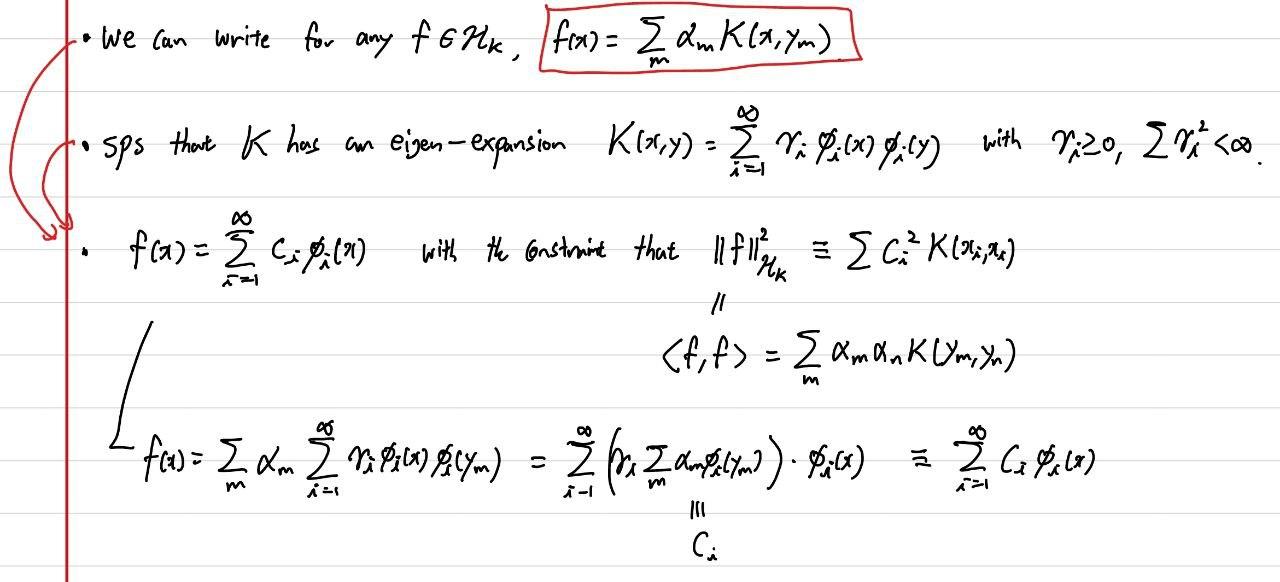 • We can write for any f ∈ ℋ_K, f(x) = Σ_m α_m K(x, y_m)
• sps that K has an eigen-expansion K(x,y) = Σ_{i=1}^∞ γ_i ϕ_i(x) ϕ_i(y) with γ_i ≥ 0, Σ γ_i² < ∞.
• f(x) = Σ_{i=1}^∞ C_i ϕ_i(x) with the constraint that ‖f‖²_{ℋ_K} ≡ Σ C_i² K(x_i, x_i)
||
<f, f> = Σ_m α_m α_n K(y_m, y_n)
f(x) = Σ_m α_m Σ_{i=1}^∞ γ_i ϕ_i(x) ϕ_i(y_m) = Σ_{i=1}^∞ (γ_i Σ_m α_m ϕ_i(y_m)) · ϕ_i(x) ≡ Σ_{i=1}^∞ C_i ϕ_i(x)
|||
C_i